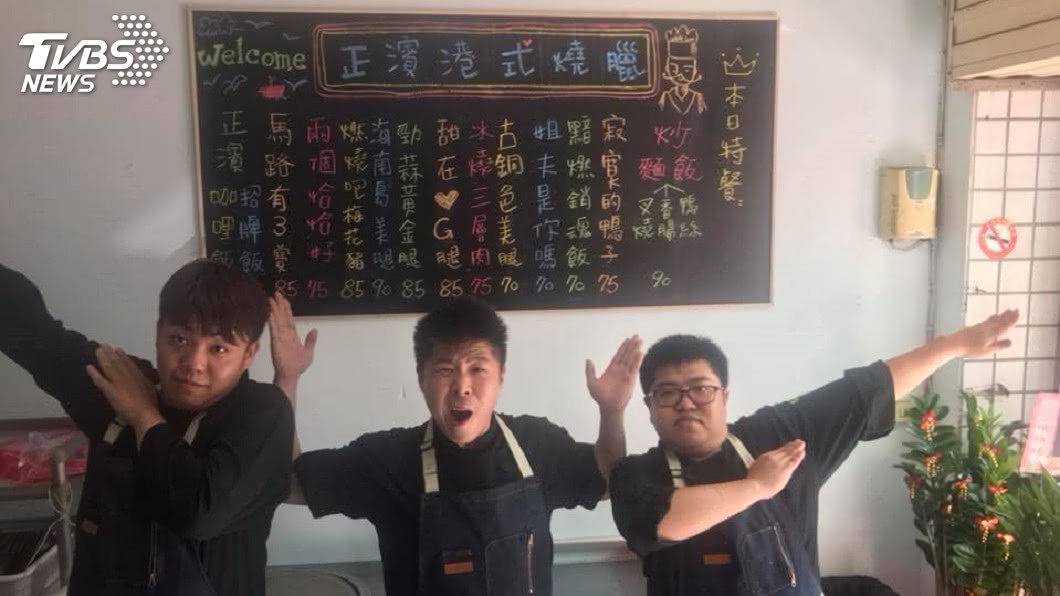 TVBS
NEWS
Welcome
正濱港式燒臘
本日特餐:
炒麵飯
鴨絲
香腸
叉燒
90
寂寞的鴨子
75
黯燃銷魂飯
70
姐夫是你嗎
70
古銅色美腿
70
冰燒三層肉
75
甜在G腿
85
勁蒜黃金腿
85
海南島美腿
90
燃燒吧梅花豬
85
兩個恰恰好
75
馬路有3寶
85
正濱
招牌飯
咖哩飯